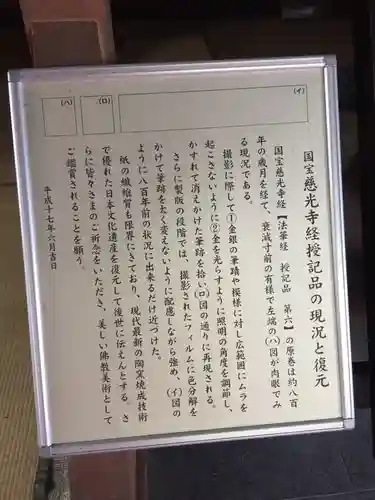 (イ)
(ロ)
(ハ)
国宝慈光寺経授記品の現況と復元
国宝慈光寺経【法華経　授記品　第六】の原巻は約八百
年の歳月を経て、衰滅寸前の有様で左端の(ハ)図が肉眼でみ
る現況である。
撮影に際して①金銀の筆蹟や模様に対し広範囲にムラを
起こさないように②金を光らすように照明の角度を調節し、
かすれて消えかけた筆跡を拾い(ロ)図の通りに再現される。
さらに製版の段階では、撮影されたフィルムに色分解を
かけて筆跡を太く変えないように配慮しながら強め、(イ)図の
ように八百年前の状況に出来るだけ近づけた。
紙の繊維質も限界にきており、現代最新の陶変焼成技術
で優れた日本文化遺産を復元して後世に伝えんとする。さ
らに皆々さまのご祈念をいただき、美しい佛教美術として
ご鑑賞されることを願う。
平成十七年六月吉日